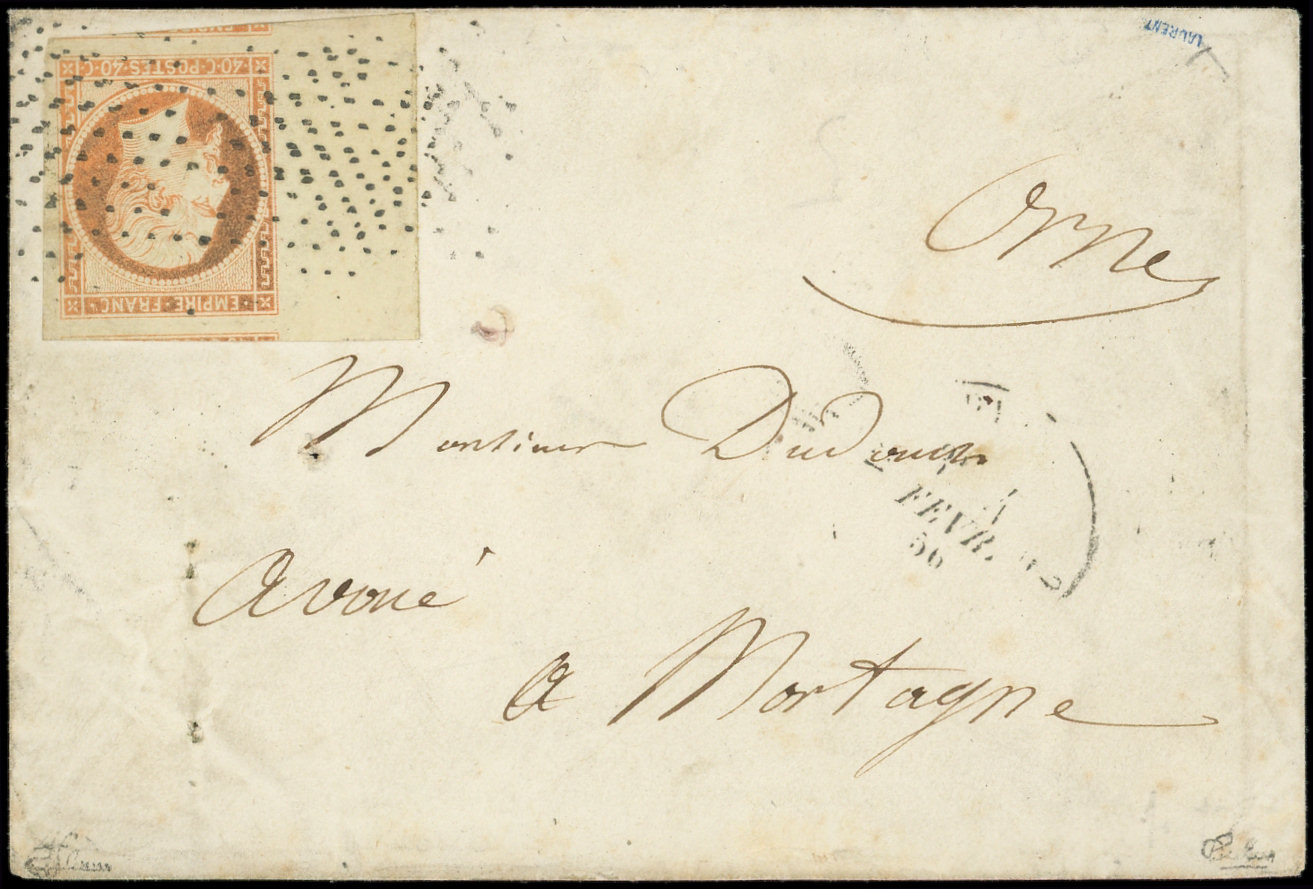 40·C·POSTES·40·C
EMPIRE·FRANC·
LAURENT
Orne
Monsieur
FEVR.
56
avoué
a Mortagne